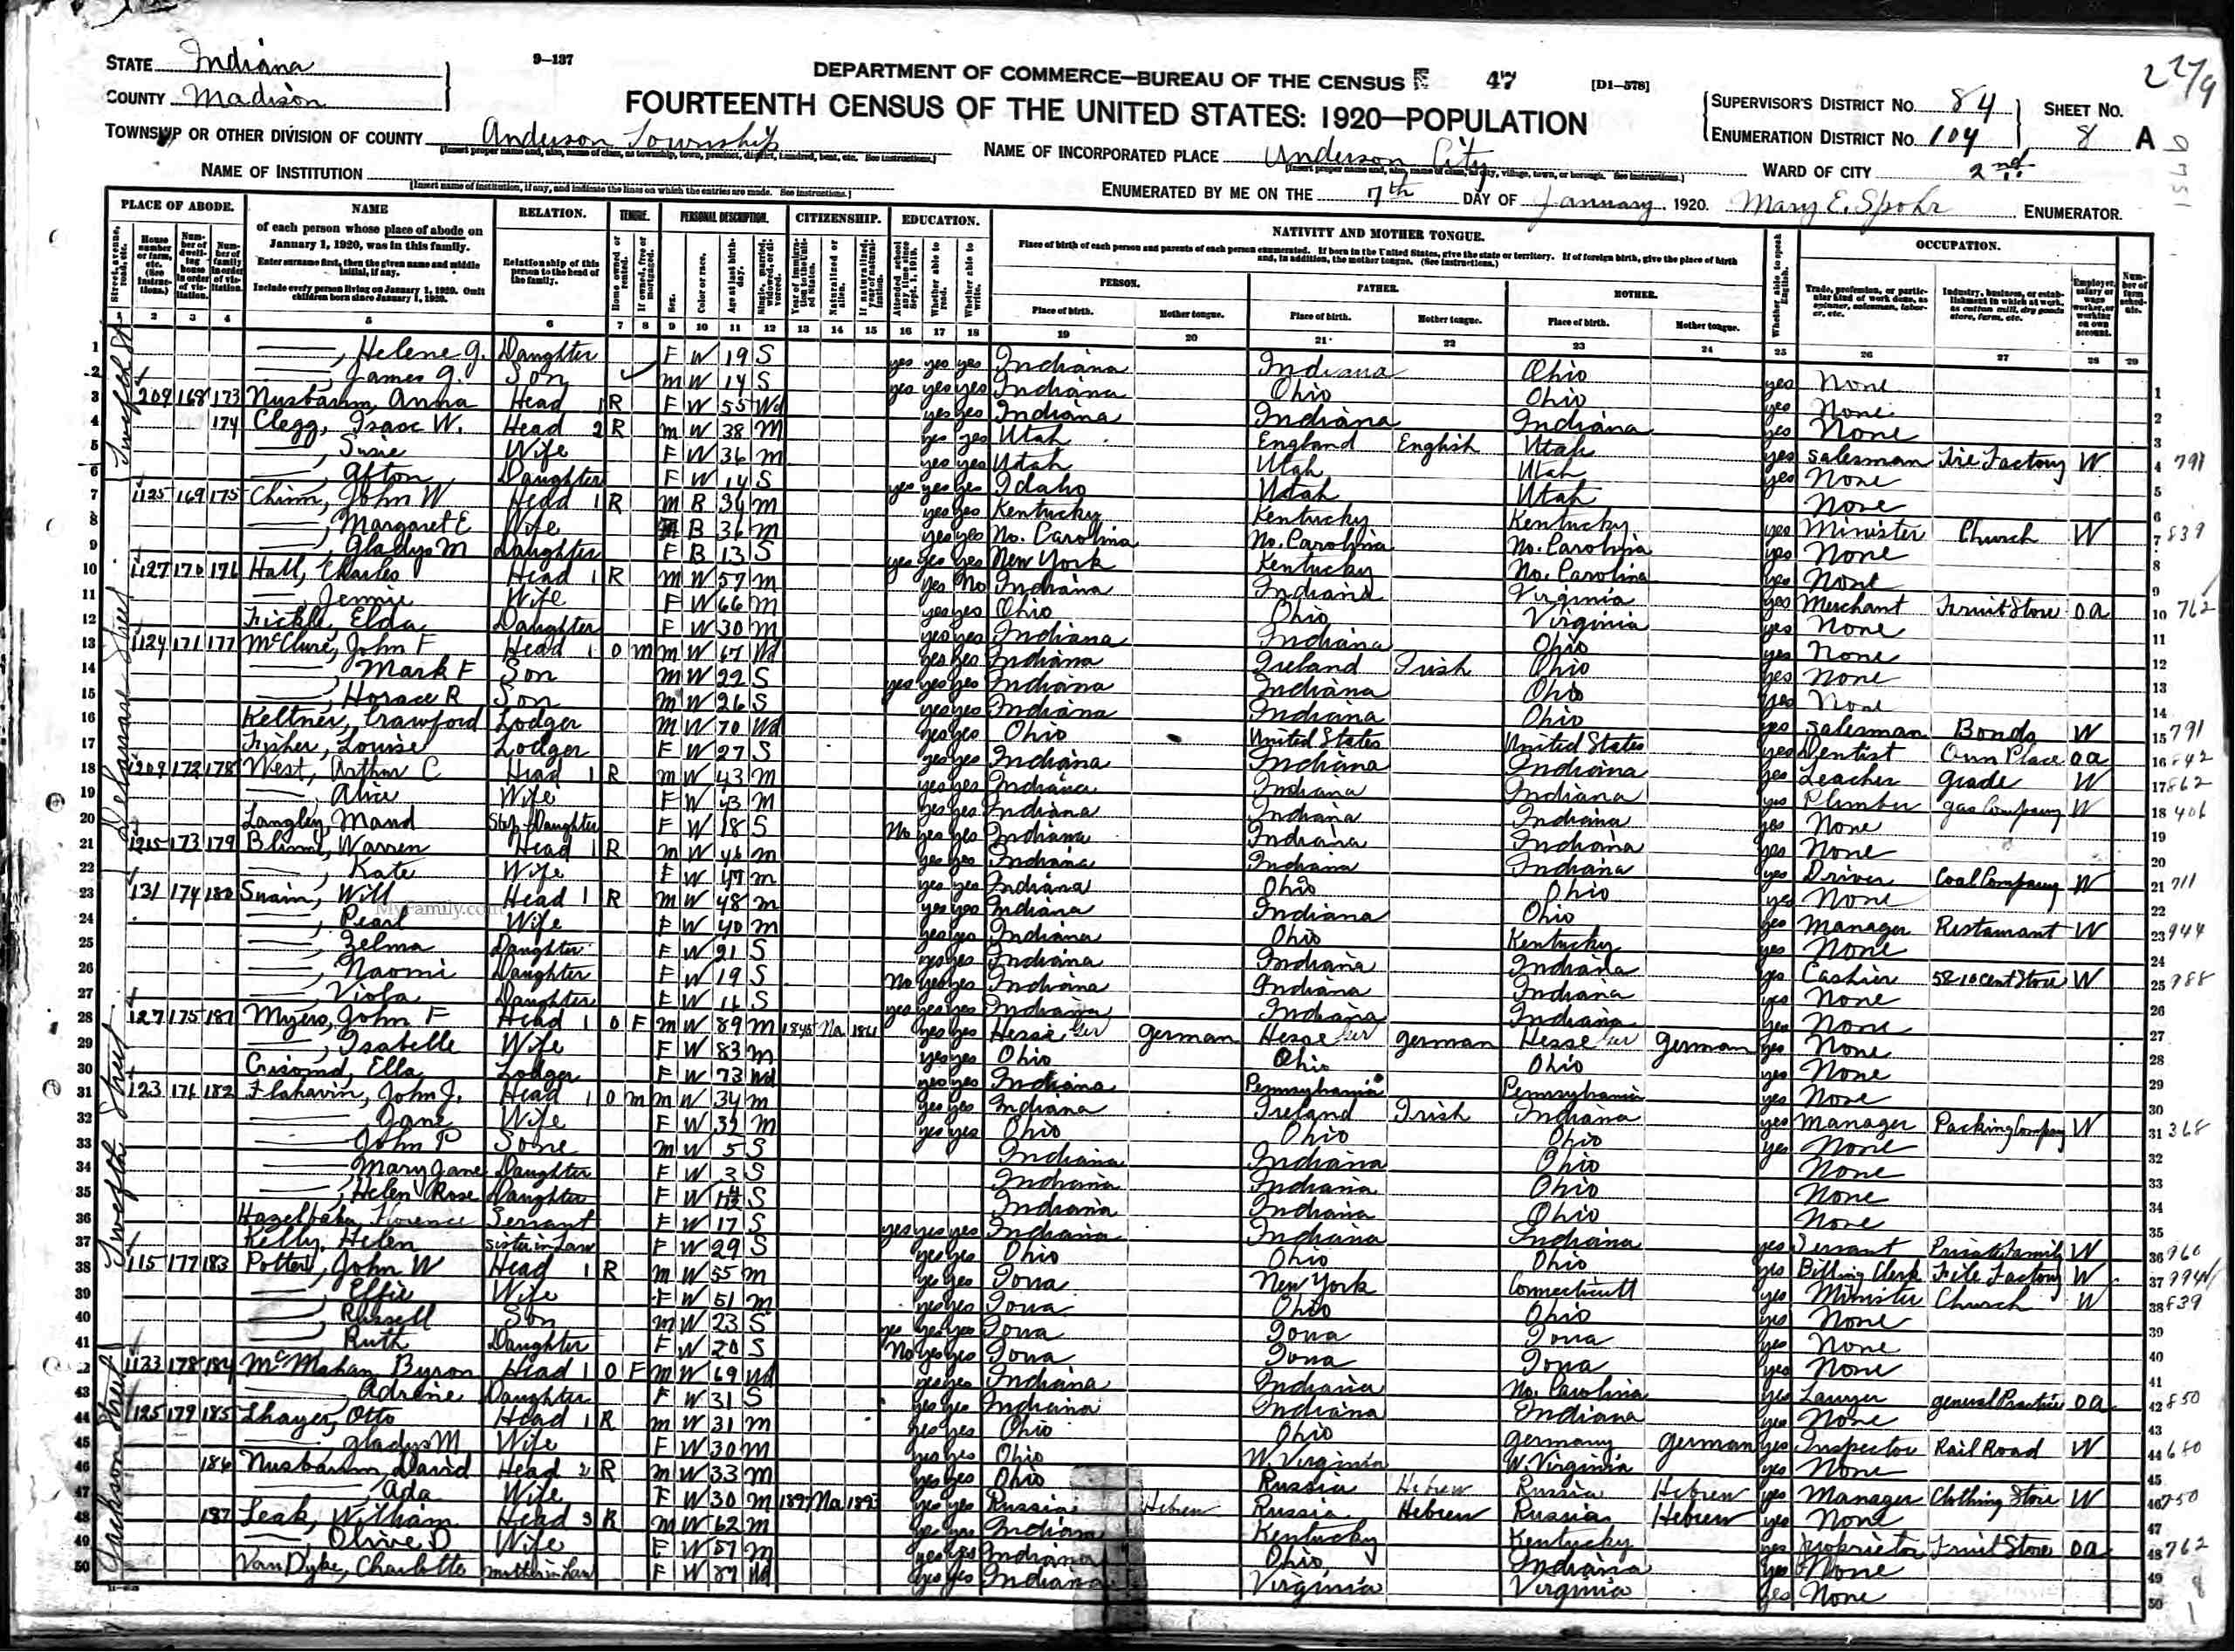 STATE Indiana
COUNTY Madison
9—137
DEPARTMENT OF COMMERCE—BUREAU OF THE CENSUS
47
[D1—578]
FOURTEENTH CENSUS OF THE UNITED STATES: 1920—POPULATION
SUPERVISOR'S DISTRICT No. 84
ENUMERATION DISTRICT No. 104
SHEET No. 8 A
TOWNSHIP OR OTHER DIVISION OF COUNTY Anderson Township
NAME OF INCORPORATED PLACE Anderson City
WARD OF CITY 2nd
NAME OF INSTITUTION
ENUMERATED BY ME ON THE 7th DAY OF January, 1920. Mary E. Spohr ENUMERATOR.
PLACE OF ABODE. NAME RELATION. TENURE. PERSONAL DESCRIPTION. CITIZENSHIP. EDUCATION. NATIVITY AND MOTHER TONGUE. OCCUPATION.
of each person whose place of abode on January 1, 1920, was in this family.
Enter surname first, then the given name and middle initial, if any.
Include every person living on January 1, 1920. Omit children born since January 1, 1920.
Relationship of this person to the head of the family.
Place of birth of each person and parents of each person enumerated. If born in the United States, give the state or territory. If of foreign birth, give the place of birth and, in addition, the mother tongue. (See instructions.)
PERSON. FATHER. MOTHER.
Place of birth. Mother tongue. Place of birth. Mother tongue. Place of birth. Mother tongue.
2 3 4 5 6 7 8 9 10 11 12 13 14 15 16 17 18 19 20 21 22 23 24 25 26 27 28 29
1 —, Helene G. Daughter F W 19 S yes yes yes Indiana Indiana Ohio yes None
2 —, James G. Son M W 14 S yes yes yes Indiana Ohio Ohio yes None
3 209 168 173 Nusbaum, Anna Head 1 R F W 55 Wd yes yes Indiana Indiana Indiana yes None
4 174 Clegg, Isaac W. Head 2 R M W 38 M yes yes Utah England English Utah yes Salesman Tie Factory W 791
5 —, Susie Wife F W 36 M yes yes Utah Utah Utah yes None
6 —, Afton Daughter F W 14 S yes yes yes Idaho Utah Utah None
7 1125 169 175 Chinn, John W Head 1 R M B 34 M yes yes Kentucky Kentucky Kentucky yes Minister Church W 839
8 —, Margaret E Wife B 36 M yes yes No. Carolina No. Carolina No. Carolina yes None
9 —, Gladys M Daughter F B 13 S yes yes yes New York Kentucky No. Carolina yes None
10 1127 170 176 Hall, Charles Head 1 R M W 57 M yes No Indiana Indiana Virginia yes Merchant Fruit Store OA 762
11 —, Jennie Wife F W 66 M yes yes Ohio Ohio Virginia yes None
12 Elda Daughter F W 30 M yes yes Indiana Indiana Ohio yes None
13 1124 171 177 McClure, John F Head 1 O M M W 67 Wd yes yes Indiana Ireland Irish Ohio yes None
14 —, Mark F Son M W 22 S yes yes yes Indiana Indiana Ohio yes None
15 —, Horace R Son M W 26 S yes yes Indiana Indiana Ohio yes Salesman Bonds W 791
16 Keltner, Crawford Lodger M W 70 Wd yes yes Ohio United States United States yes Dentist Own Place OA 842
17 Fisher, Louise Lodger F W 27 S yes yes Indiana Indiana Indiana yes Teacher Grade W 862
18 1209 172 178 West, Arthur C Head 1 R M W 43 M yes yes Indiana Indiana Indiana yes Plumber Gas Company W 406
19 —, Alice Wife F W 43 M yes yes Indiana Indiana Indiana yes None
20 Langley, Maud Step Daughter F W 18 S No yes yes Indiana Indiana Indiana yes None
21 1215 173 179 Warren Head 1 R M W 46 M yes yes Indiana Indiana Indiana yes Driver Coal Company W 711
22 —, Kate Wife F W 47 M yes yes Indiana Ohio Ohio yes None
23 131 174 180 Swain, Will Head 1 R M W 48 M yes yes Indiana Indiana Ohio yes Manager Restaurant W 944
MyFamily.com
24 —, Pearl Wife F W 40 M yes yes Indiana Ohio Kentucky yes None
25 —, Zelma Daughter F W 21 S yes yes Indiana Indiana Indiana yes Cashier 5&10 cent Store W 988
26 —, Naomi Daughter F W 19 S No yes yes Indiana Indiana Indiana yes None
27 —, Viola Daughter F W S yes yes yes Indiana Indiana Indiana yes None
28 127 175 181 Myers, John F Head 1 O F M W 89 M 1845 Na 1861 yes yes Hesse Ger German Hesse Ger German Hesse Ger German yes None
29 —, Isabelle Wife F W 83 M yes yes Ohio Ohio Ohio yes None
30 Ella Lodger F W 73 Wd yes yes Indiana Pennsylvania Pennsylvania yes None
31 123 176 182 Flahavin, John J. Head 1 O M M W 34 M yes yes Indiana Ireland Irish Indiana yes Manager Packing Company W 368
32 — Jane Wife F W 33 M yes yes Ohio Ohio Ohio yes None
33 — John P Sone M W 5 S Indiana Indiana Ohio None
34 — Mary Jane Daughter F W 3 S Indiana Indiana Ohio None
35 —, Helen Rose Daughter F W S Indiana Indiana Ohio None
36 Florence Servant F W 17 S yes yes yes Indiana Indiana Indiana yes Servant Private Family W 960
37 Kelly, Helen Sister in Law F W 29 S yes yes Ohio Ohio Ohio yes Billing Clerk File Factory W
38 115 177 183 Potter, John W Head 1 R M W 55 M yes yes Iowa New York Connecticutt yes Minister Church W 839
39 —, Effie Wife F W 51 M yes yes Iowa Ohio Ohio yes None
40 —, Russell Son M W 23 S yes yes yes Iowa Iowa Iowa yes None
41 —, Ruth Daughter F W 20 S No yes yes Iowa Iowa Iowa yes None
42 1123 178 184 McMahan, Byron Head 1 O F M W 69 Wd yes yes Indiana Indiana No. Carolina yes Lawyer General Practice OA 850
43 —, Adrine Daughter F W 31 S yes yes Indiana Indiana Indiana yes None
44 1125 179 185 Thayer, Otto Head 1 R M W 31 M yes yes Ohio Ohio Germany German yes Inspector Rail Road W 680
45 —, Gladys M Wife F W 30 M yes yes Ohio W. Virginia W. Virginia yes None
46 186 Nusbaum, David Head 2 R M W 33 M yes yes Ohio Russia Hebrew Russia Hebrew yes Manager Clothing Store W 750
47 —, Ada Wife F W 30 M 1897 Na 1897 yes yes Russia Hebrew Russia Hebrew Russia Hebrew yes None
48 187 Leak, William Head 3 R M W 62 M yes yes Indiana Kentucky Kentucky yes Proprietor Fruit Store OA 762
49 —, Olive D Wife F W 57 M yes yes Indiana Ohio Indiana yes None
50 VanDyke, Charlotte mother in Law F W 87 Wd yes yes Indiana Virginia Virginia yes None
Twelfth Street
Jackson Street